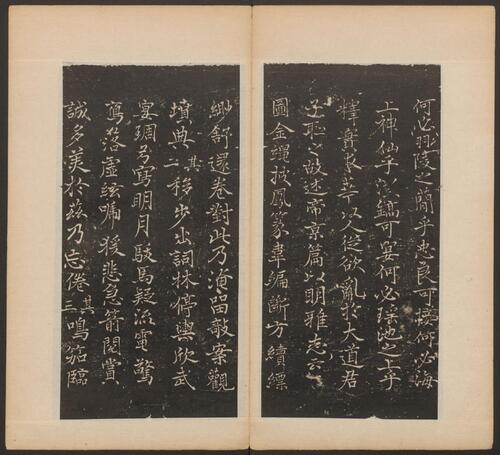 何必羽陵之蘭乎忠良可接何必海
上神仙乎以鎬可宴何必瑶池之上乎
釋實求華以人從欲亂於大道君
子耻之故述帝京篇以明雅志云
圖金繩披鳳篆韋編斷方續縹
緗舒還卷對此乃淹留敧案觀
墳典其二移步出詞林停輿欣武
宴琱弓寫明月駿馬疑流電驚
鴈落虛弦啼猨悲急箭閱賞
誠多美於兹乃忘倦其三鳴笳臨